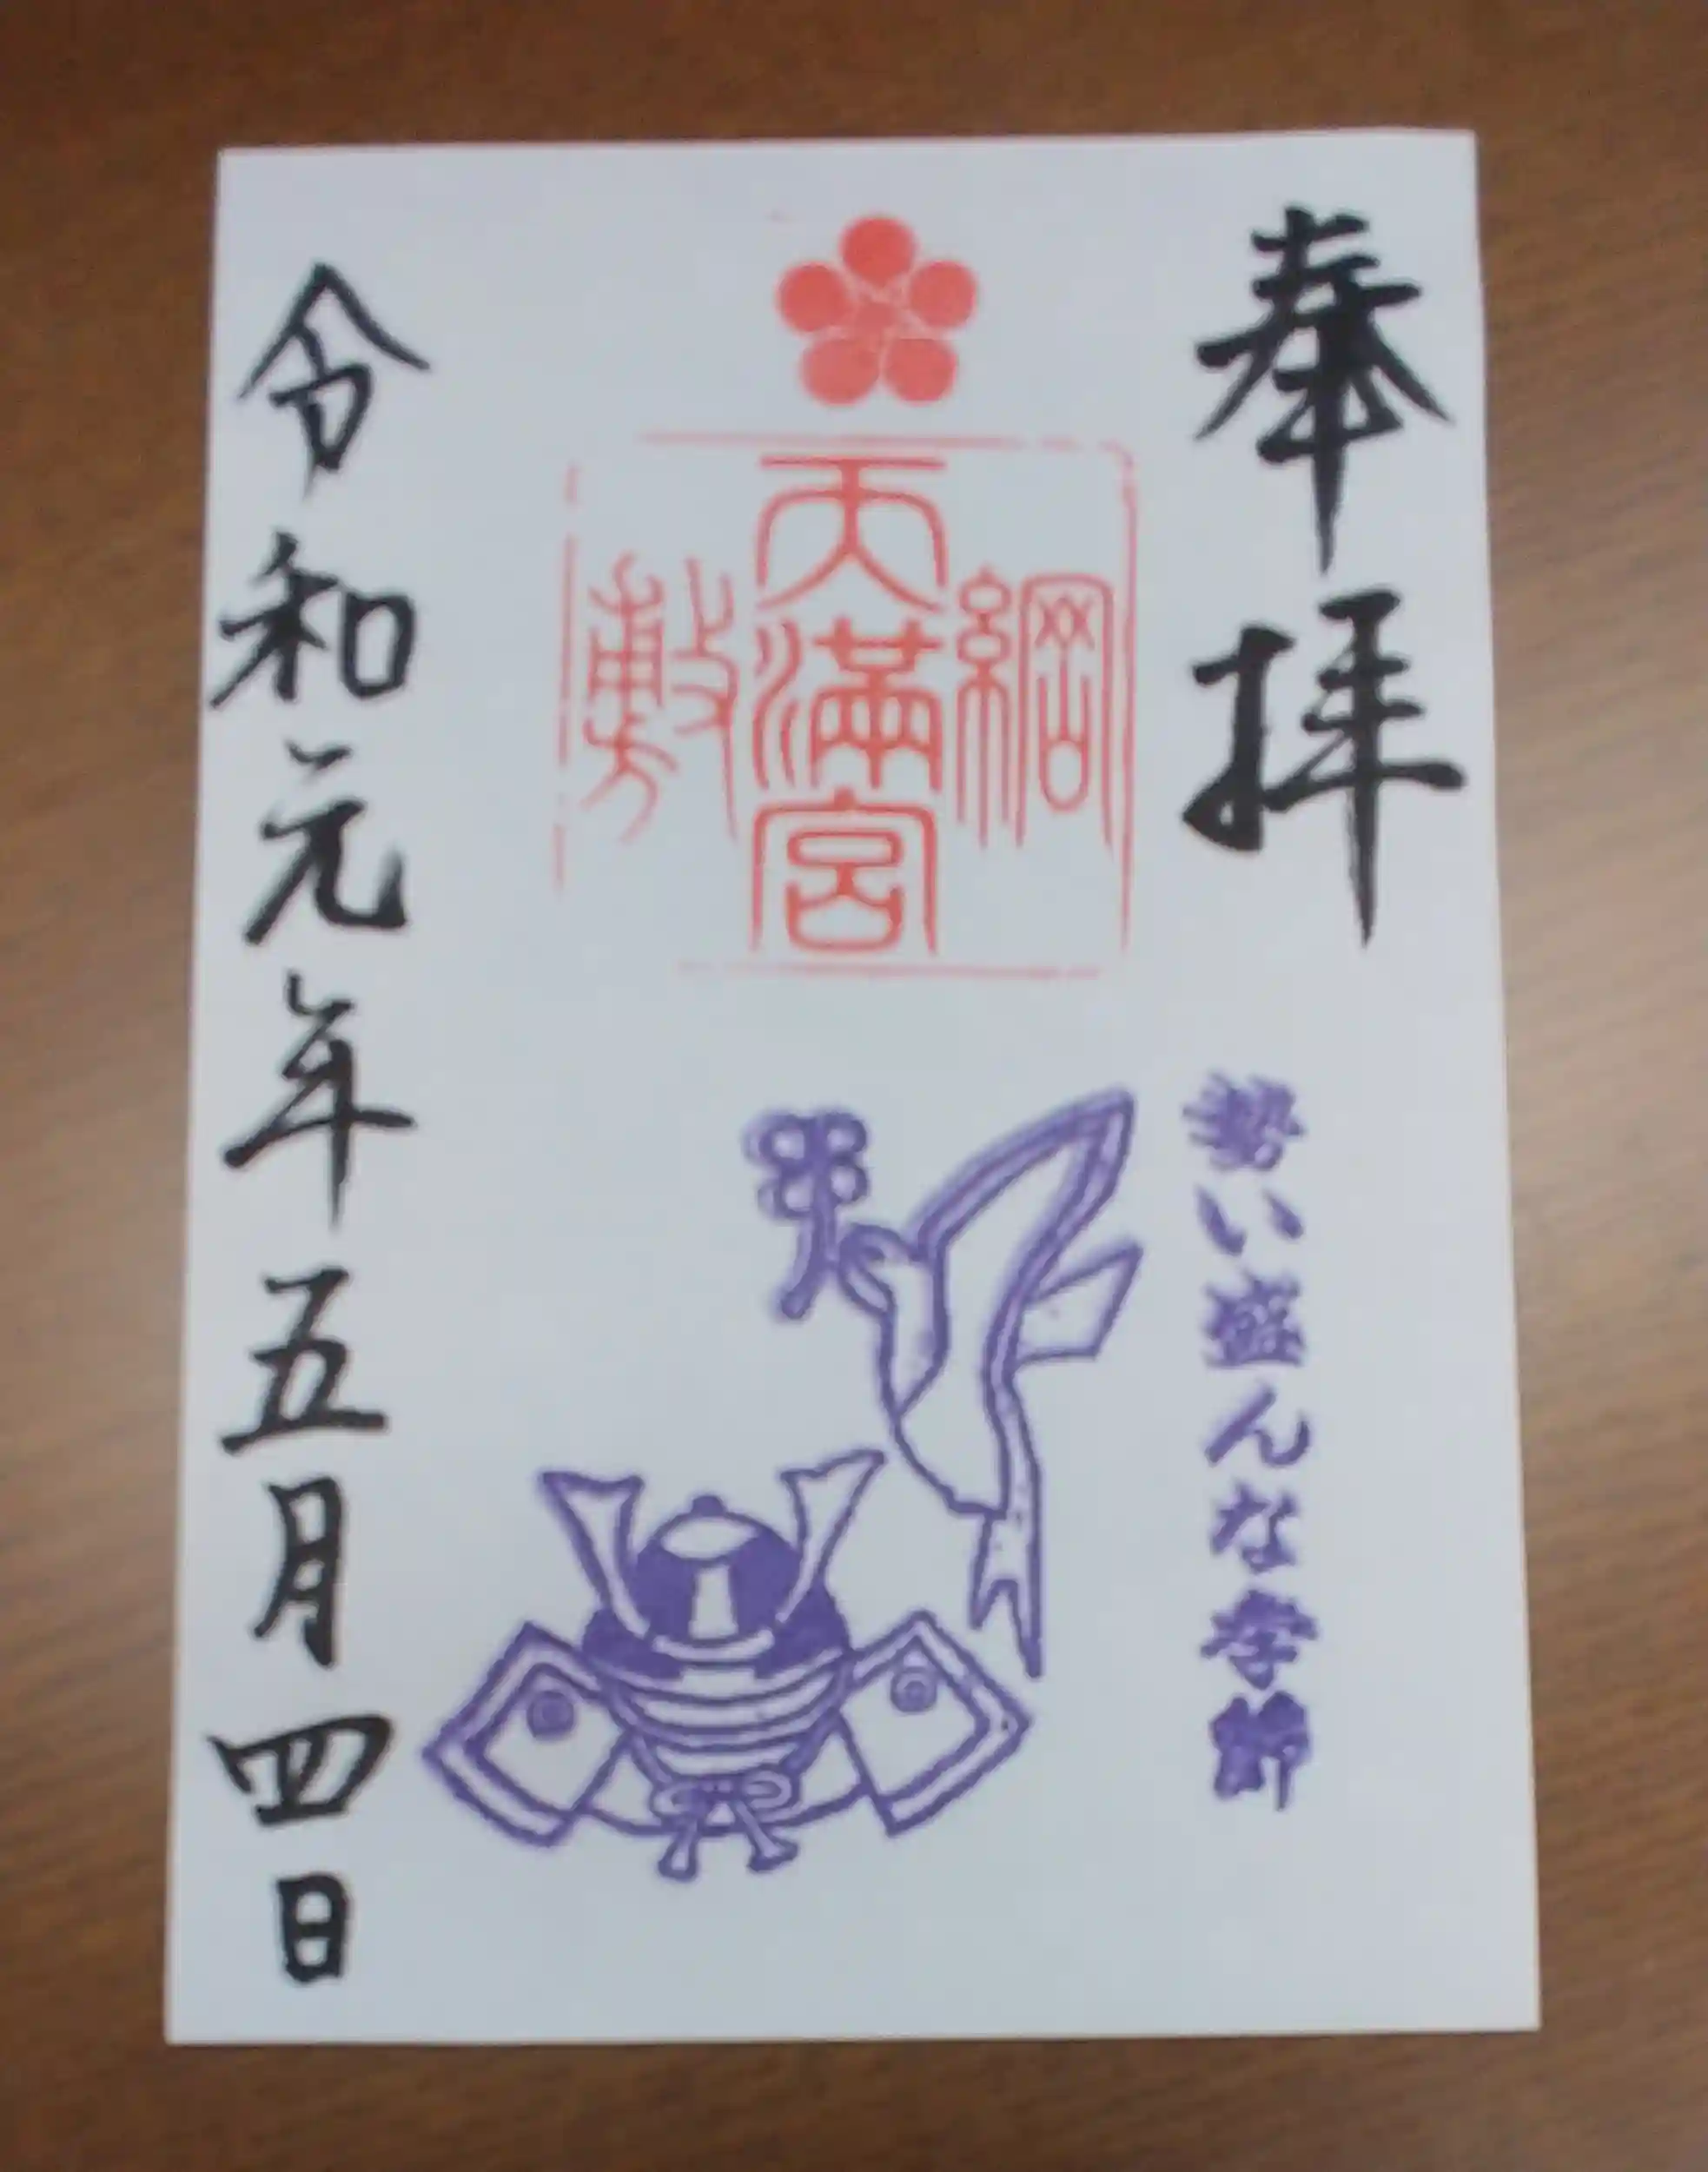 奉拝
勢い盛んな季節
綱敷
天満宮
令和元年五月四日